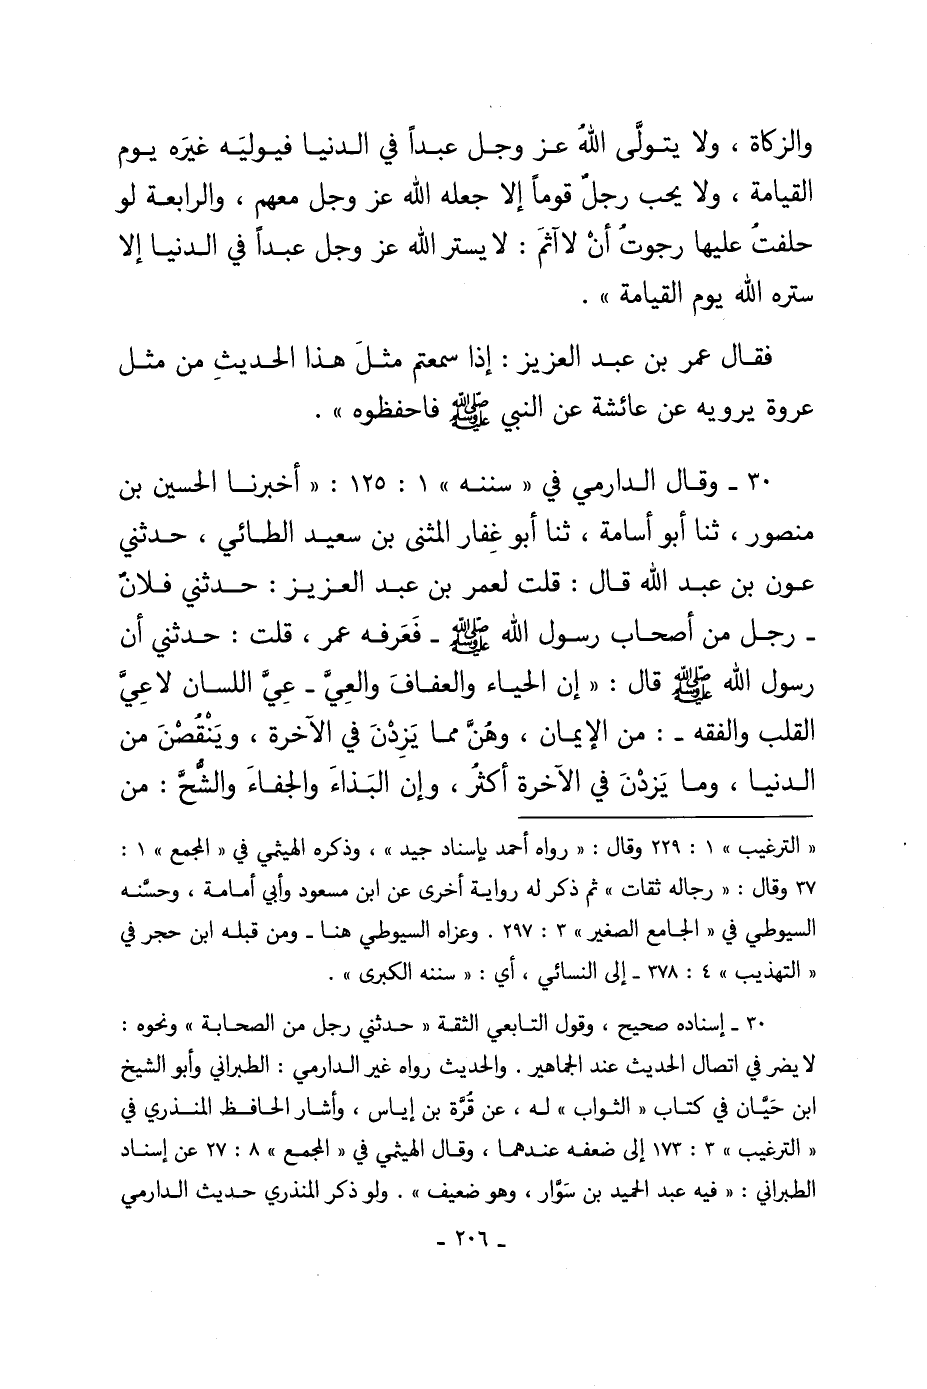 والزكاة ، ولا يتولَّى اللهُ عز وجل عبداً في الدنيا فيوليَه غيرَه يوم
القيامة ، ولا يحب رجلٌ قوماً إلا جعله الله عز وجل معهم ، والرابعة لو
حلفتُ عليها رجوتُ أنْ لا آثمَ : لا يستر الله عز وجل عبداً في الدنيا إلا
ستره الله يوم القيامة » .
فقال عمر بن عبد العزيز : إذا سمعتم مثلَ هذا الحديثِ من مثل
عروة يرويه عن عائشة عن النبي ﷺ فاحفظوه » .
٣٠ ـ وقال الدارمي في « سننه » ١ : ١٢٥ : « أخبرنا الحسين بن
منصور ، ثنا أبو أسامة ، ثنا أبو غِفار المثنى بن سعيد الطائي ، حدثني
عون بن عبد الله قال : قلت لعمر بن عبد العزيز : حدثني فلانٌ
ـ رجل من أصحاب رسول الله ﷺ ـ فَعَرفه عمر ، قلت : حدثني أن
رسول الله ﷺ قال : « إن الحياء والعفافَ والعِيَّ ـ عِيَّ اللسان لا عِيَّ
القلب والفقه ـ : من الإيمان ، وهُنَّ مما يَزِدْنَ في الآخرة ، ويَنْقُصْنَ من
الدنيا ، وما يَزدْنَ في الآخرة أكثرُ ، وإن البَذاءَ والجفاءَ والشُّحَّ : من
« الترغيب » ١ : ٢٢٩ وقال : « رواه أحمد بإسناد جيد » ، وذكره الهيثمي في « المجمع » ١ :
٣٧ وقال : « رجاله ثقات » ثم ذكر له رواية أخرى عن ابن مسعود وأبي أمامة ، وحسَّنه
السيوطي في « الجامع الصغير » ٣ : ٢٩٧ . وعزاه السيوطي هنا ـ ومن قبله ابن حجر في
« التهذيب » ٤ : ٣٧٨ ـ إلى النسائي ، أي : « سننه الكبرى » .
٣٠ ـ إسناده صحيح ، وقول التابعي الثقة « حدثني رجل من الصحابة » ونحوه :
لا يضر في اتصال الحديث عند الجماهير . والحديث رواه غير الدارمي : الطبراني وأبو الشيخ
ابن حَيَّان في كتاب « الثواب » له ، عن قُرَّة بن إياس ، وأشار الحافظ المنذري في
« الترغيب » ٣ : ١٧٣ إلى ضعفه عندهما ، وقال الهيثمي في « المجمع » ٨ : ٢٧ عن إسناد
الطبراني : « فيه عبد الحميد بن سَوَّار ، وهو ضعيف » . ولو ذكر المنذري حديث الدارمي
ـ ٢٠٦ ـ